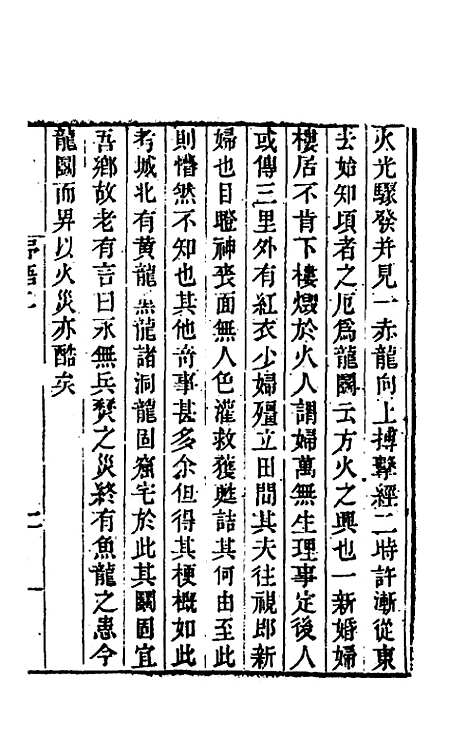 火光驟發并見一赤龍向上搏擊經二時許漸從東
去始知頃者之厄為龍鬭云方火之興也一新婚婦
樓居不肯下樓燬於火人謂婦萬無生理事定後人
或傳三里外有紅衣少婦殭立田間其夫往視即新
婦也目瞪神喪面無人色灌救獲甦詰其何由至此
則惛然不知也其他奇事甚多余但得其梗概如此
考城北有黃龍黑龍諸洞龍固窟宅於此其鬭固宜
吾鄉故老有言曰永無兵燹之災終有魚龍之患今
龍鬭而畀以火災亦酷矣